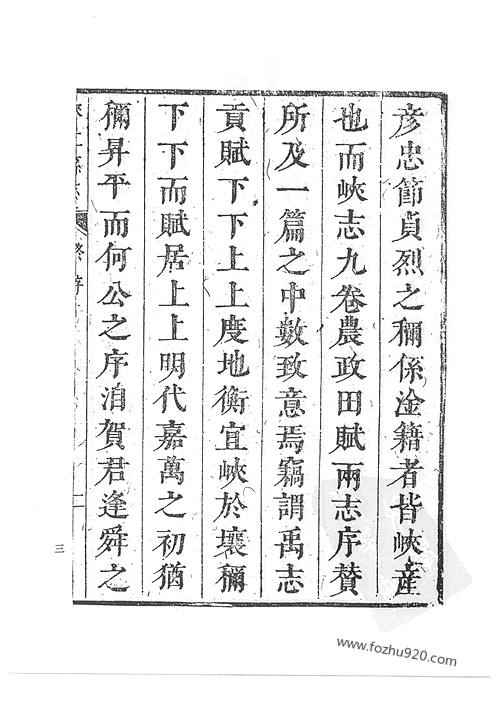 彦忠節貞烈之稱係淦籍者皆峽產
也而峽志九卷農政田賦兩志序賛
所及一篇之中數致意焉竊謂禹志
貢賦下下上上度地衡宜峽於壤稱
下下而賦居上上明代嘉萬之初猶
稱昇平而何公之序洎賀君逢舜之
序
二
三
www.fozhu920.com